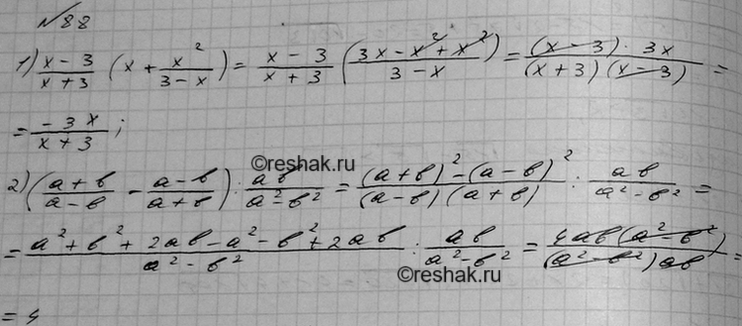 №88
1) (x - 3)/(x + 3) (x + x²/(3 - x)) = (x - 3)/(x + 3) ((3x - x² + x²)/(3 - x)) = ((x - 3) · 3x)/((x + 3)(x - 3)) =
= (- 3x)/(x + 3);
2) ((a + b)/(a - b) - (a - b)/(a + b)) : ab/(a² - b²) = ((a + b)² - (a - b)²)/((a - b)(a + b)) : ab/(a² - b²) =
©reshak.ru
= (a² + b² + 2ab - a² - b² + 2ab)/(a² - b²) : ab/(a² - b²) = (4ab(a² - b²))/((a² - b²)ab) =
©reshak.ru
= 4